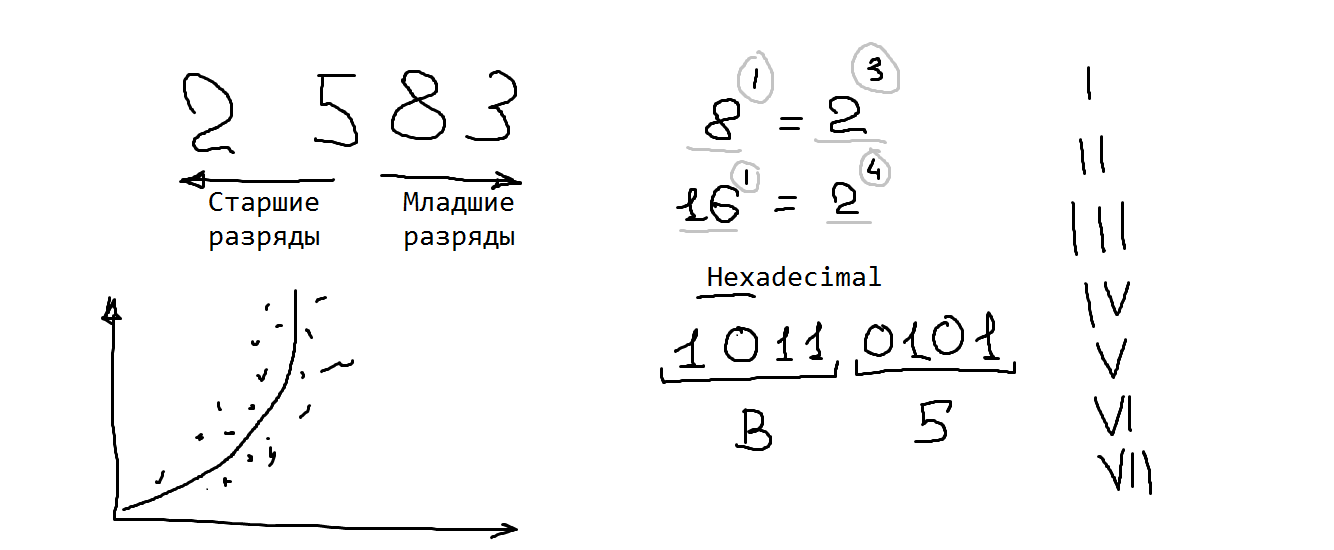 2 5 8 3
Старшие
разряды
Младшие
разряды
8¹ = 2³
16¹ = 2⁴
Hexadecimal
1011 0101
B 5
I
II
III
IV
V
VI
VII